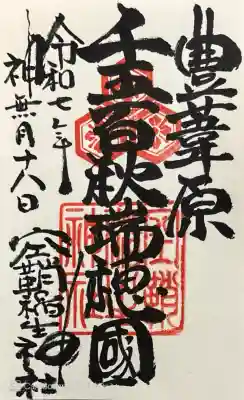 豊葦原
千五百秋瑞穂國
令和七年
神無月十八日
空鞘稲生神社